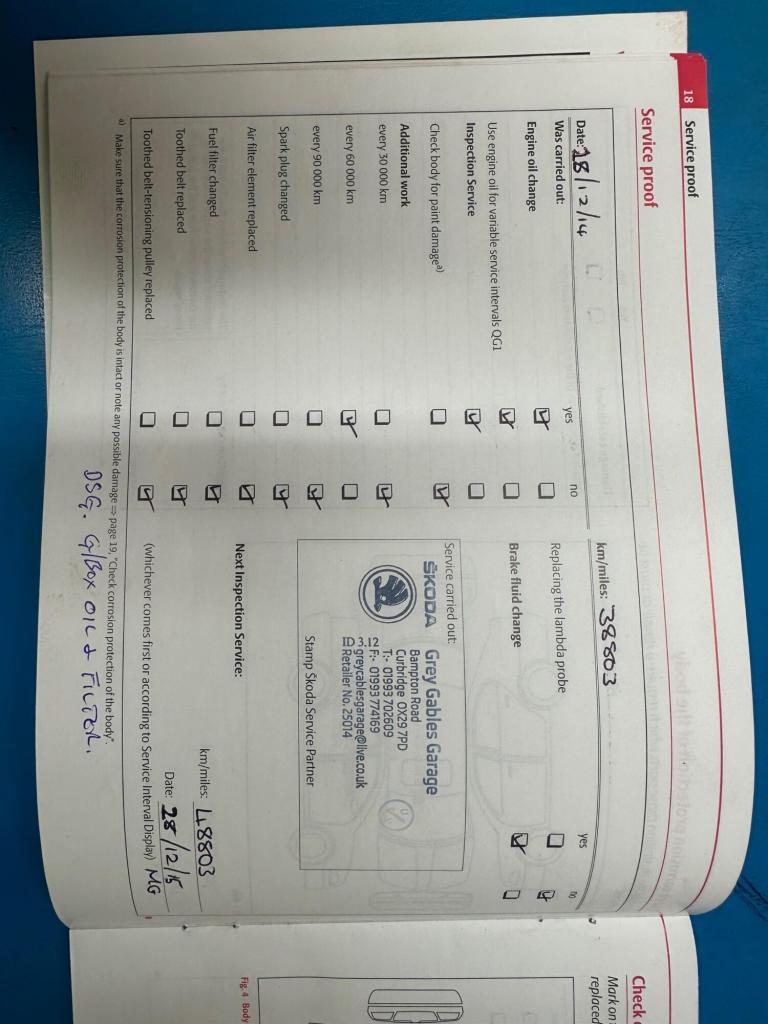 18 Service proof
Service proof
Date: 18/12/14
km/miles: 38803
Was carried out:
yes
no
Engine oil change
Use engine oil for variable service intervals QG1
Inspection Service
Check body for paint damage a)
Additional work
every 30 000 km
every 60 000 km
every 90 000 km
Spark plug changed
Air filter element replaced
Fuel filter changed
Toothed belt replaced
Toothed belt-tensioning pulley replaced
yes
no
Replacing the lambda probe
Brake fluid change
Service carried out:
ŠKODA Grey Gables Garage
Bampton Road
Curbridge OX29 7PD
T:- 01993 702609
F:- 01993 774169
greycablesgarage@live.co.uk
Retailer No. 25014
Stamp Škoda Service Partner
Next Inspection Service:
km/miles: 48803
Date: 28/12/15
(whichever comes first or according to Service Interval Display) MG
a) Make sure that the corrosion protection of the body is intact or note any possible damage ⇒ page 19, "Check corrosion protection of the body".
DSG. G/BOX OIL & FILTER.
Check
Mark on
replaced
Fig. 4 Body